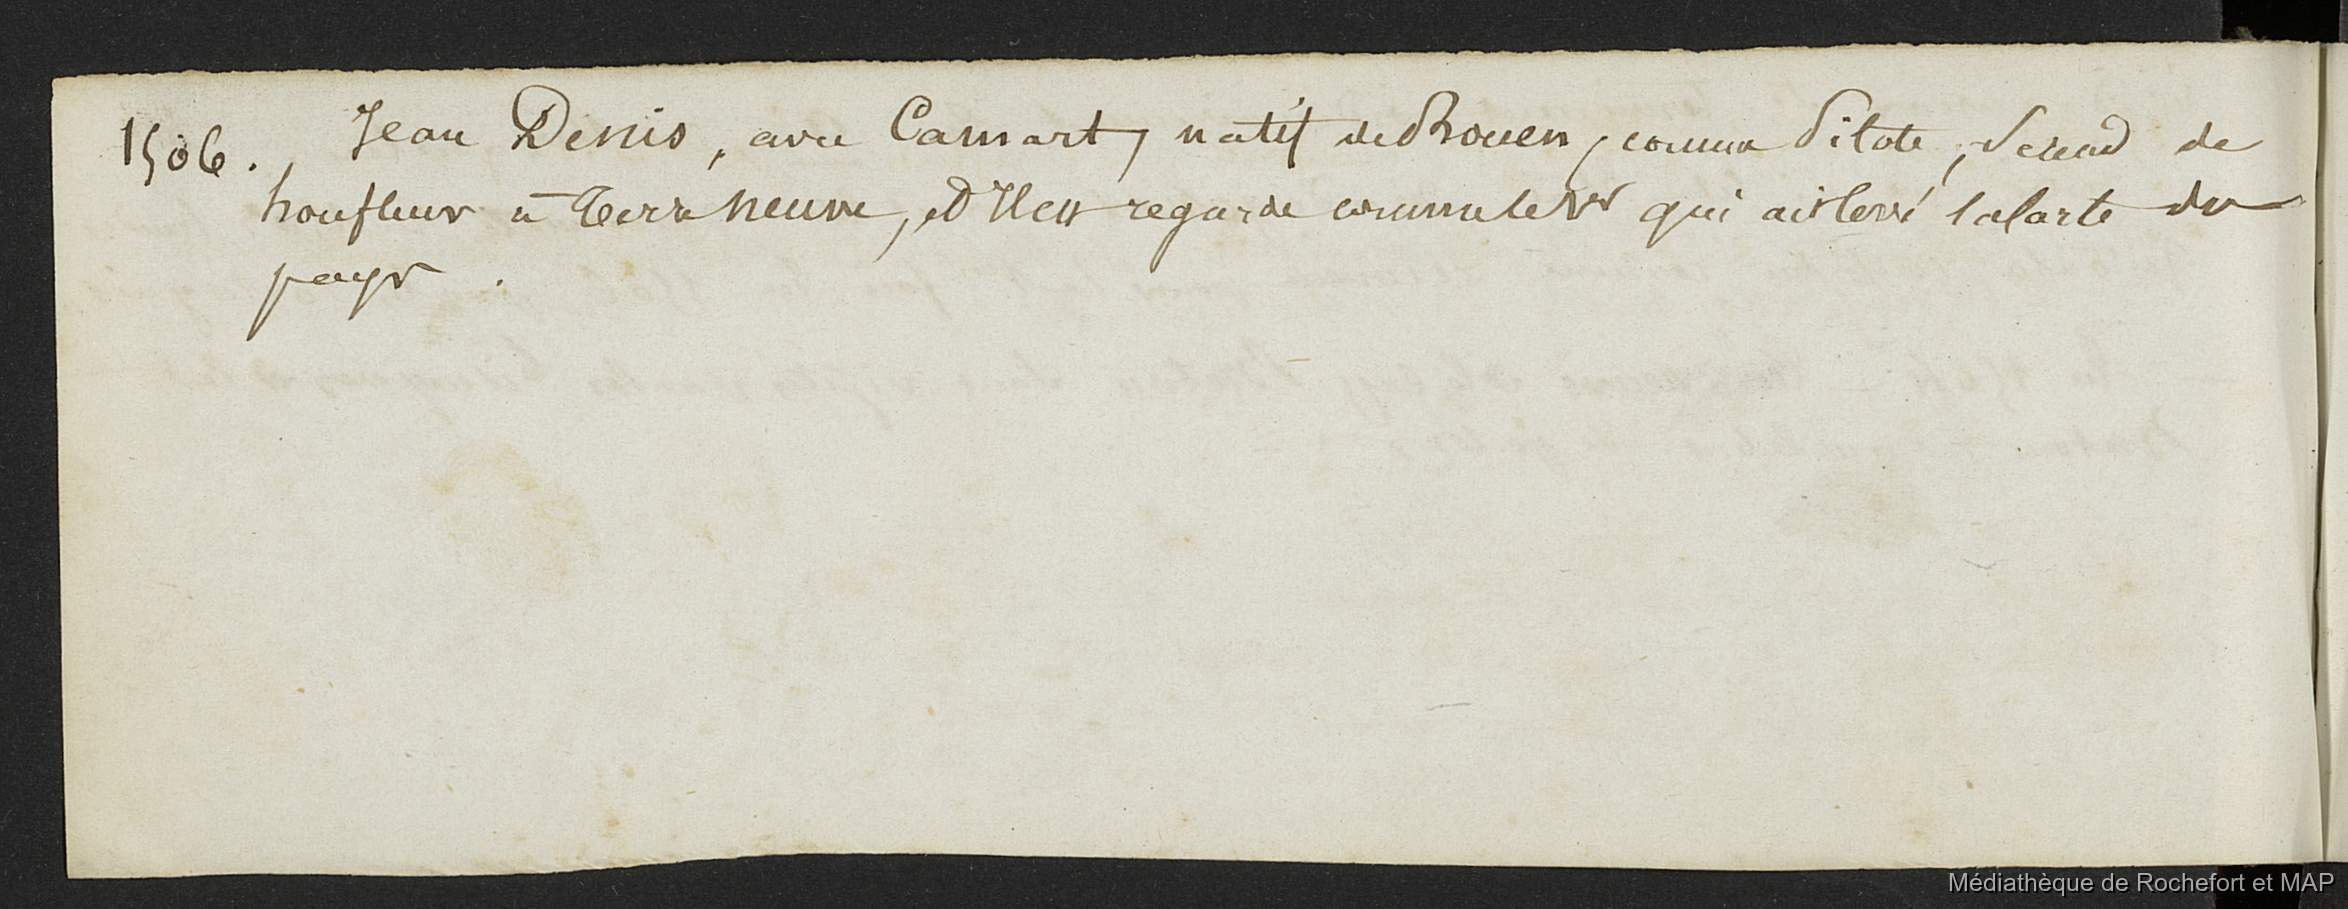 1506. Jean Denis, avec Camart, natif de Rouen, comme Pilote, se rend de
honfleur à Terre neuve, et Il est regardé comme le 1er qui ait levé la Carte du
pays.
Médiathèque de Rochefort et MAP